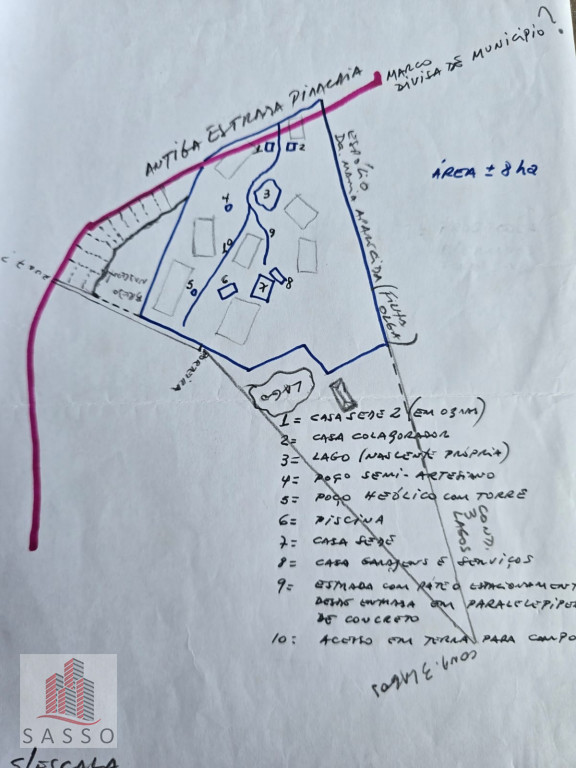 MARCO
DIVISA DE MUNICÍPIO?
ANTIGA ESTRADA PIRACAIA
ÁREA ± 8 ha
ESPÓLIO
DA. MARIA APARECIDA (FILHO
OLGA)
1
2
3
4
5
6
7
8
9
10
NASCENTE
BREJO
PORTEIRA
LAGO
1 = CASA SEDE 2 (EM OBRAS)
2 = CASA COLABORADOR
3 = LAGO (NASCENTE PRÓPRIA)
4 = POÇO SEMI-ARTESIANO
5 = POÇO HEÓLICO COM TORRE
6 = PISCINA
7 = CASA SEDE
8 = CASA GARAGENS E SERVIÇOS
9= ESTRADA COM PÁTEO ESTACIONAMENT
DESDE ENTRADA EM PARALELEPIPE
DE CONCRETO
10: ACESSO EM TERRA PARA CAMPO
COND.
3
LAGOS
COND. 3 LAGOS
SASSO
S/ESCALA